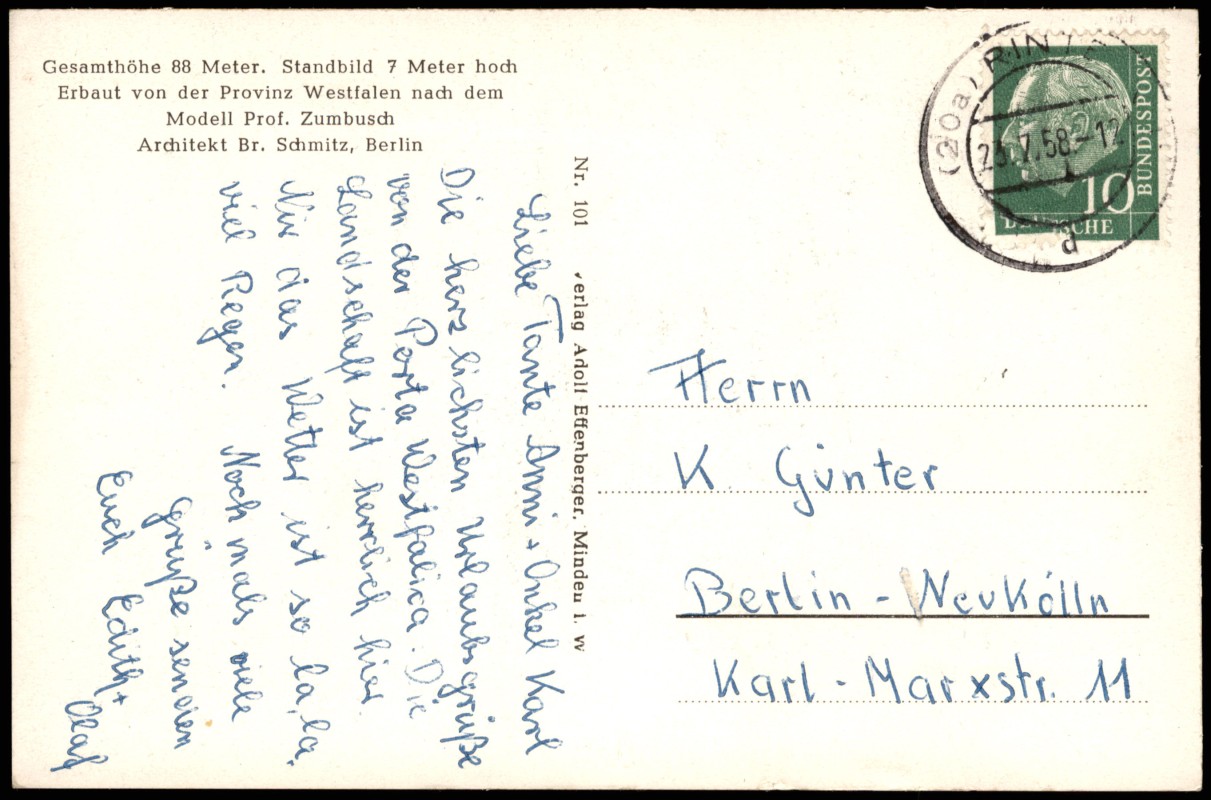 Gesamthöhe 88 Meter. Standbild 7 Meter hoch
Erbaut von der Provinz Westfalen nach dem
Modell Prof. Zumbusch
Architekt Br. Schmitz, Berlin
Liebe Tante Anni + Onkel Karl
Die herzlichsten Urlaubsgrüße
von der Porta Westfalica. Die
Landschaft ist herrlich hier.
Nur das Wetter ist so la, la,
viel Regen. Noch mals viele
Grüße senden
Euch Edith +
Olaf
Nr. 101
Verlag Adolf Effenberger, Minden i. W
(20a) RINTE
23.7.58.-12
d
10
BUNDESPOST
DEUTSCHE
Herrn
K Günter
Berlin - Neukölln
Karl - Marxstr. 11